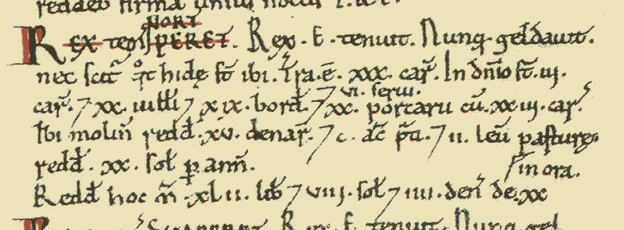 reddeb̄ firmā unius noctis
NORT
REX ten̄ PERET. Rex. E. tenuit. Nunq̄ geldauit.
nec scit̄ q̊t hidę st̄ ibi. T̄ra. ē. xxx. car̄. In dn̄io st̄. iii.
vi. serui.
car̄. ⁊ xx. uilłi ⁊ xix. bord̄ ⁊ xx. porcarii cū. xxiii. car̄.
Ibi molin̄ redd̄. xv. denar̄. ⁊ c. ac̄ p̄ti. ⁊ ii. leū pasturę.
redd̄. xx. soł p ann̄.
in ora.
Redd̄ hoc m̄. xlii. lib̄ ⁊ viii. soł ⁊ iiii. den̄ de. xx
Rex. E. tenuit. Nunq̄ gel